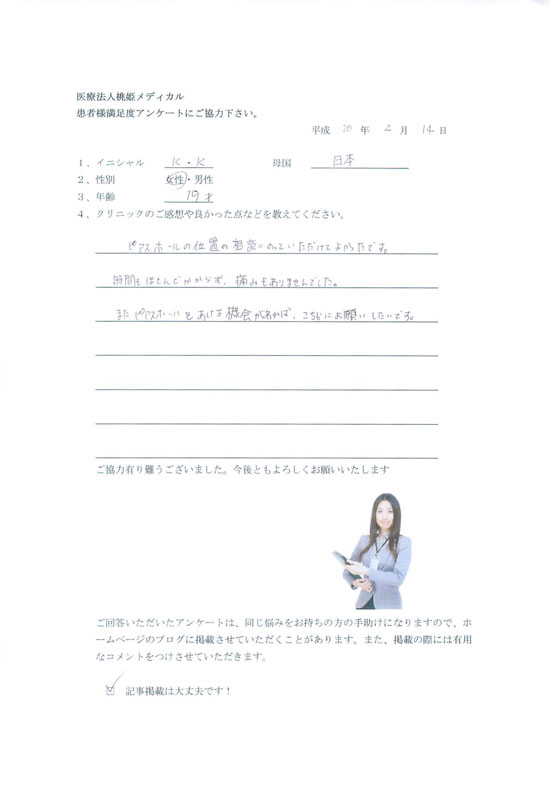 医療法人桃姫メディカル
患者様満足度アンケートにご協力下さい。
平成 20 年 2 月 14 日
1、イニシャル K・K 母国 日本
2、性別 女性・男性
3、年齢 19才
4、クリニックのご感想や良かった点などを教えてください。
ピアスホールの位置の相談にのっていただけてよかったです。
時間もほとんどかからず、痛みもありませんでした。
またピアスホールをあける機会があれば、こちらにお願いしたいです。
ご協力有り難うございました。今後ともよろしくお願いいたします
ご回答いただいたアンケートは、同じ悩みをお持ちの方の手助けになりますので、ホ
ームページのブログに掲載させていただくことがあります。また、掲載の際には有用
なコメントをつけさせていただきます。
☑ 記事掲載は大丈夫です！